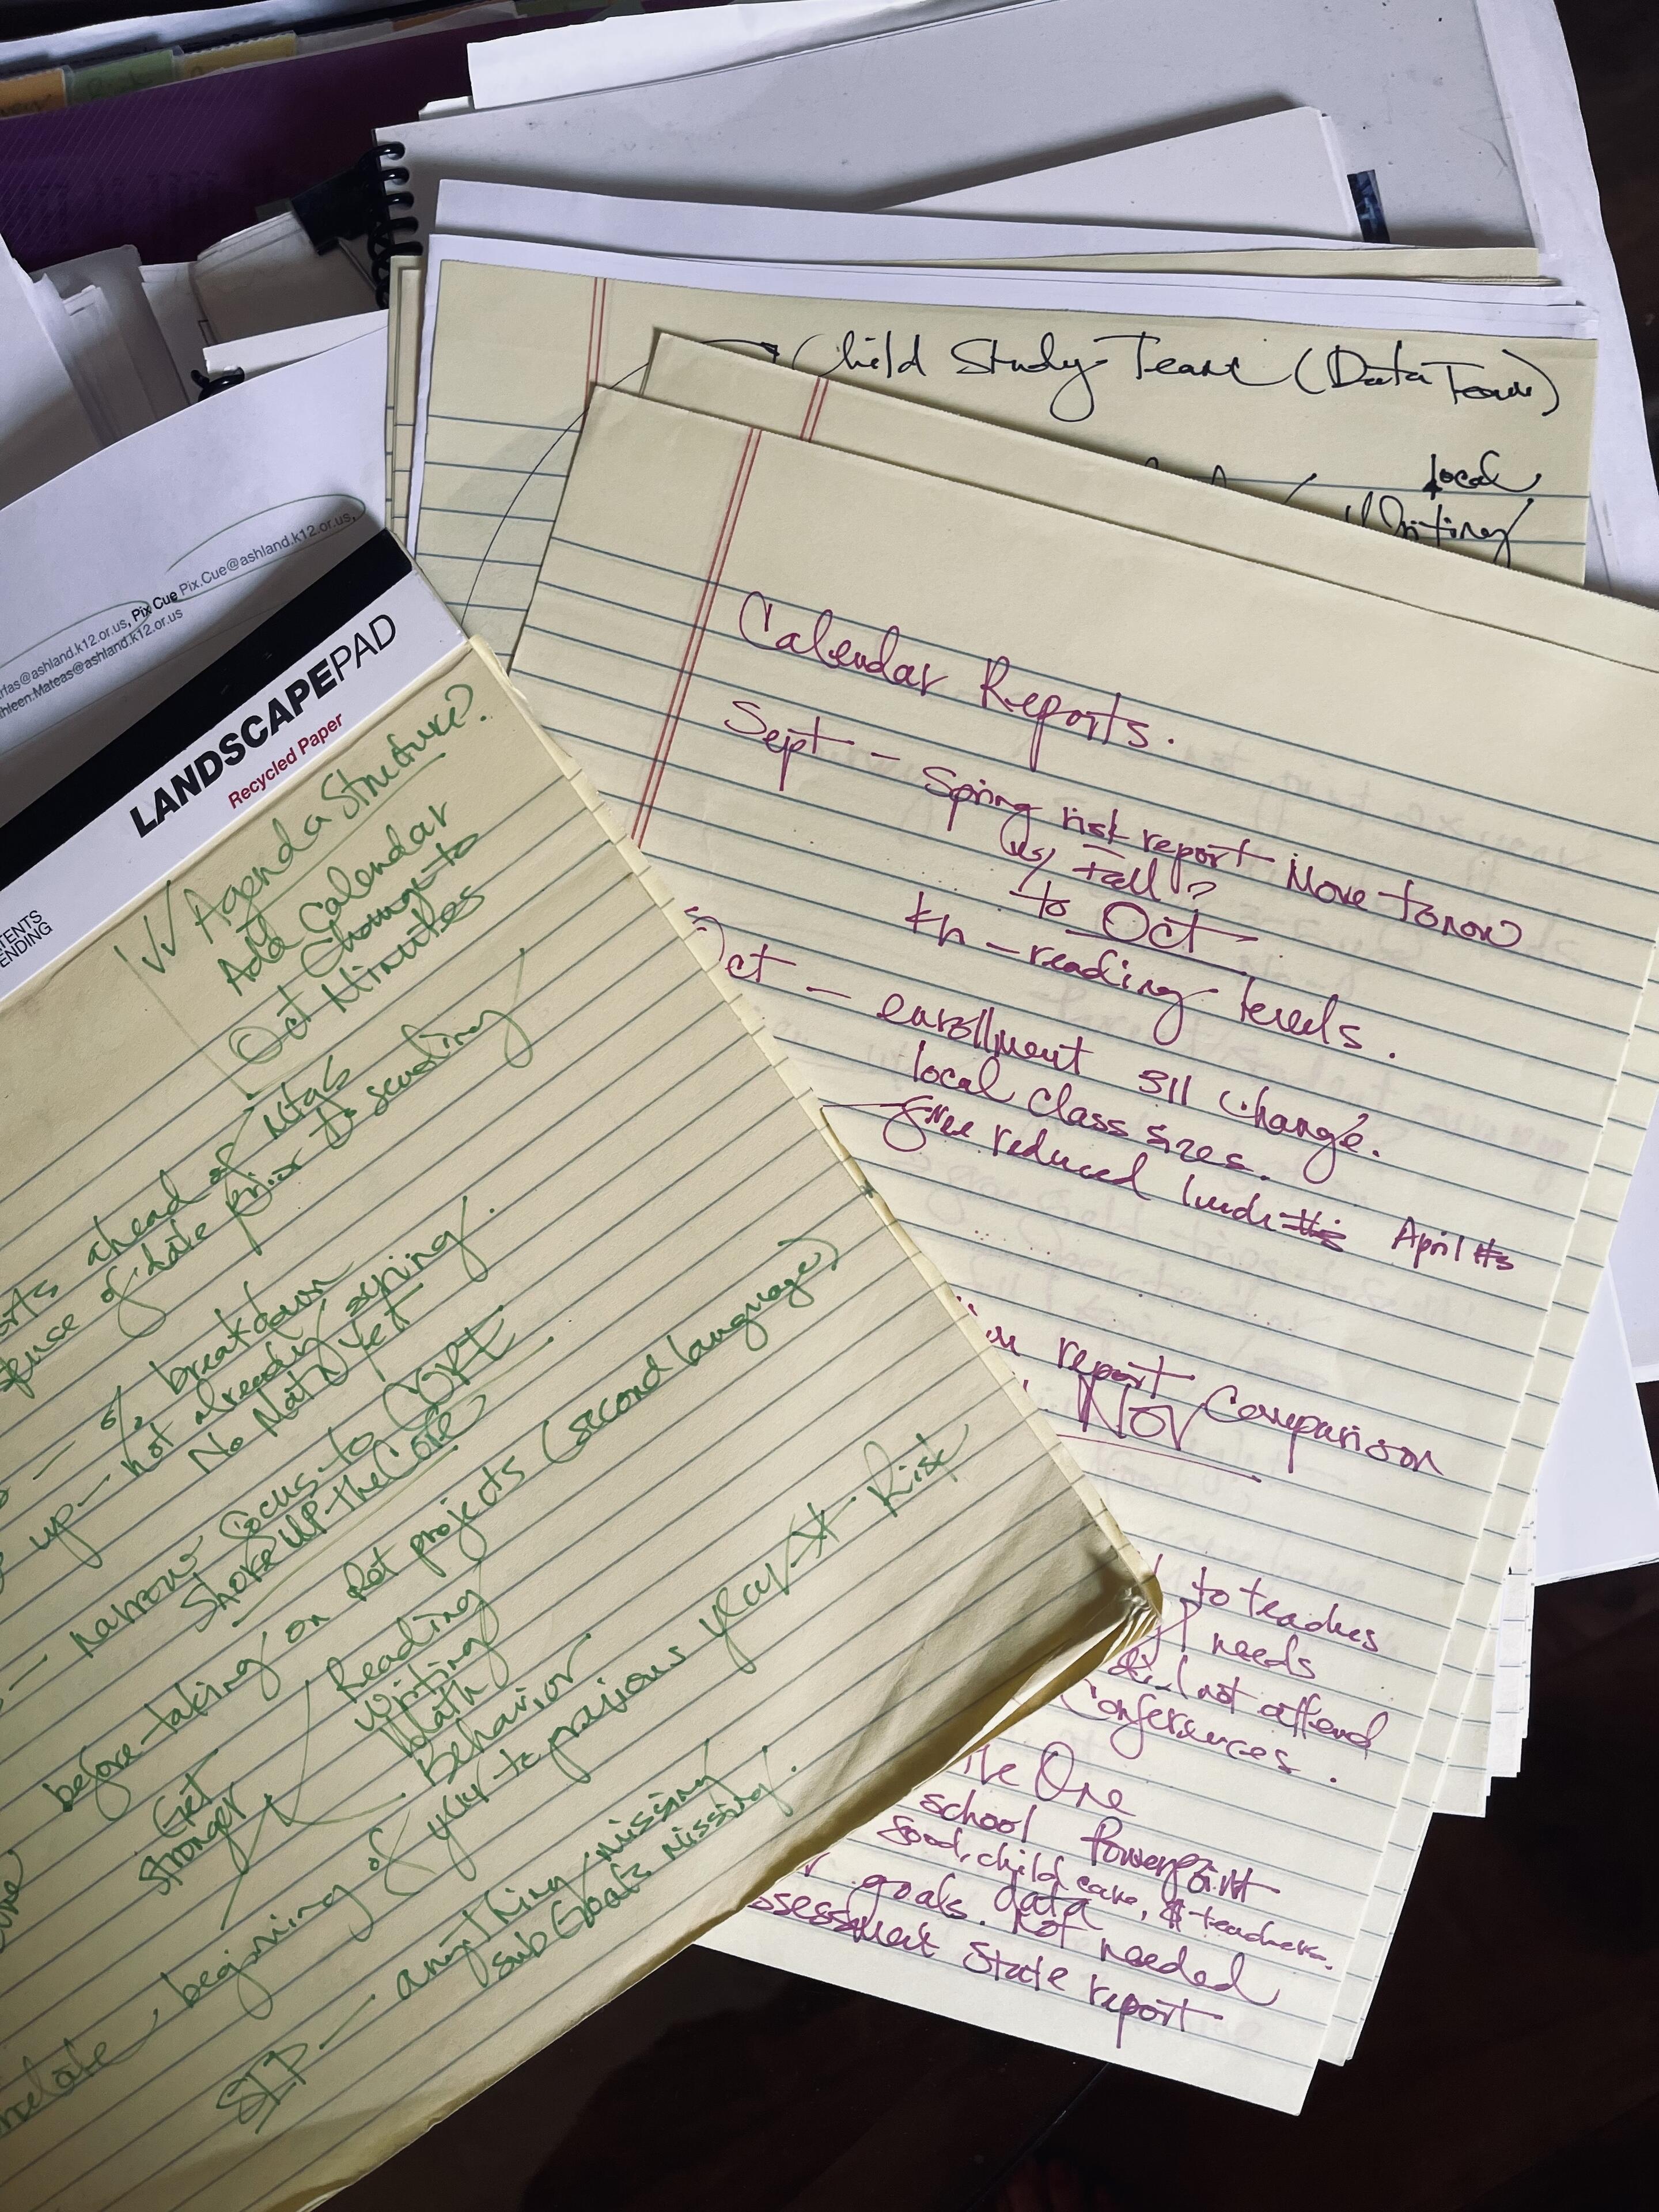 Child Study Team (Data Team)
local
Writing
Pix Cue Pix.Cue@ashland.k12.or.us,
@ashland.k12.or.us,
Mateas@ashland.k12.or.us
LANDSCAPEPAD
Recycled Paper
ENDING
Agenda Structure?
Add Calendar
Change to
Oct Minutes
ahead of mtgs
of date prior to sending
% breakdown
up - not already spring.
No Math yet
narrow focus to ORF
Shore UP the Core
before taking on Pet projects (second language)
Get
Stronger
Reading
Writing
Math
Behavior
beginning of year to previous year At Risk
SIP - anything missing
sub Goals missing.
Calendar Reports.
Sept - Spring risk report Move to now
vs/ Fall?
to Oct
kn - reading levels.
Oct - enrollment 311 change.
local class sizes.
free reduced lunch #s April #s
report Comparison
Nov
to teaches
needs
did not attend
Conferences.
One
school PowerPoint
food, child care, $ teachers.
goals. data
Not needed
assessment State report